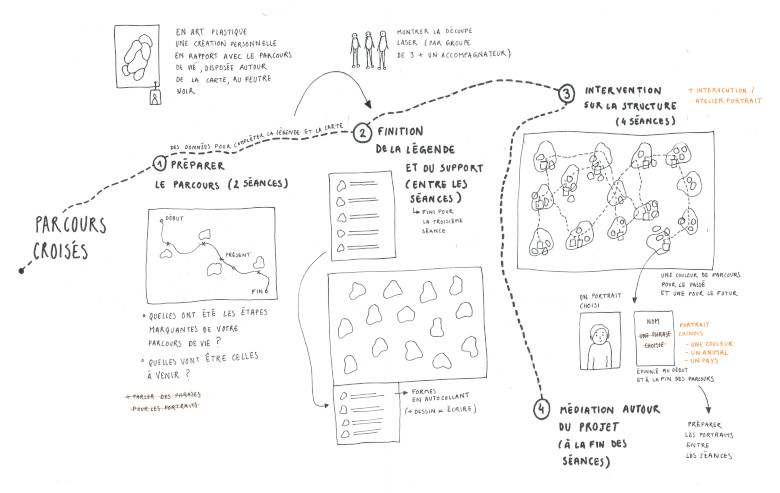 PARCOURS
CROISÉS
EN ART PLASTIQUE
UNE CRÉATION PERSONNELLE
EN RAPPORT AVEC LE PARCOURS
DE VIE, DISPOSÉE AUTOUR
DE LA CARTE, AU FEUTRE
NOIR
MONTRER LA DÉCOUPE
LASER (PAR GROUPE
DE 3 + UN ACCOMPAGNATEUR)
DES DONNÉES POUR COMPLÉTER LA LÉGENDE ET LA CARTE
1 PRÉPARER
LE PARCOURS (2 SÉANCES)
DÉBUT
PRÉSENT
FIN
QUELLES ONT ÉTÉ LES ÉTAPES
MARQUANTES DE VOTRE
PARCOURS DE VIE ?
QUELLES VONT ÊTRE CELLES
À VENIR ?
+ PARLER DES PHRASES
POUR LES PORTRAITS
2 FINITION
DE LA LÉGENDE
ET DU SUPPORT
(ENTRE LES
SÉANCES)
FINI POUR
LA TROISIÈME
SÉANCE
FORMES
EN AUTOCOLLANT
(+ DESSIN + ÉCRIRE)
3 INTERVENTION
SUR LA STRUCTURE
(4 SÉANCES)
+ INTERVENTION /
ATELIER PORTRAIT
UNE COULEUR DE PARCOURS
POUR LE PASSÉ
ET UNE POUR LE FUTUR
UN PORTRAIT
CHOISI
NOM
UNE PHRASE
CHOISIE
PORTRAIT
CHINOIS
- UNE COULEUR
- UN ANIMAL
- UN PAYS
ÉPINGLÉ AU DÉBUT
ET À LA FIN DES PARCOURS
PRÉPARER
LES PORTRAITS
ENTRE
LES SÉANCES
4 MÉDIATION AUTOUR
DU PROJET
(À LA FIN DES
SÉANCES)